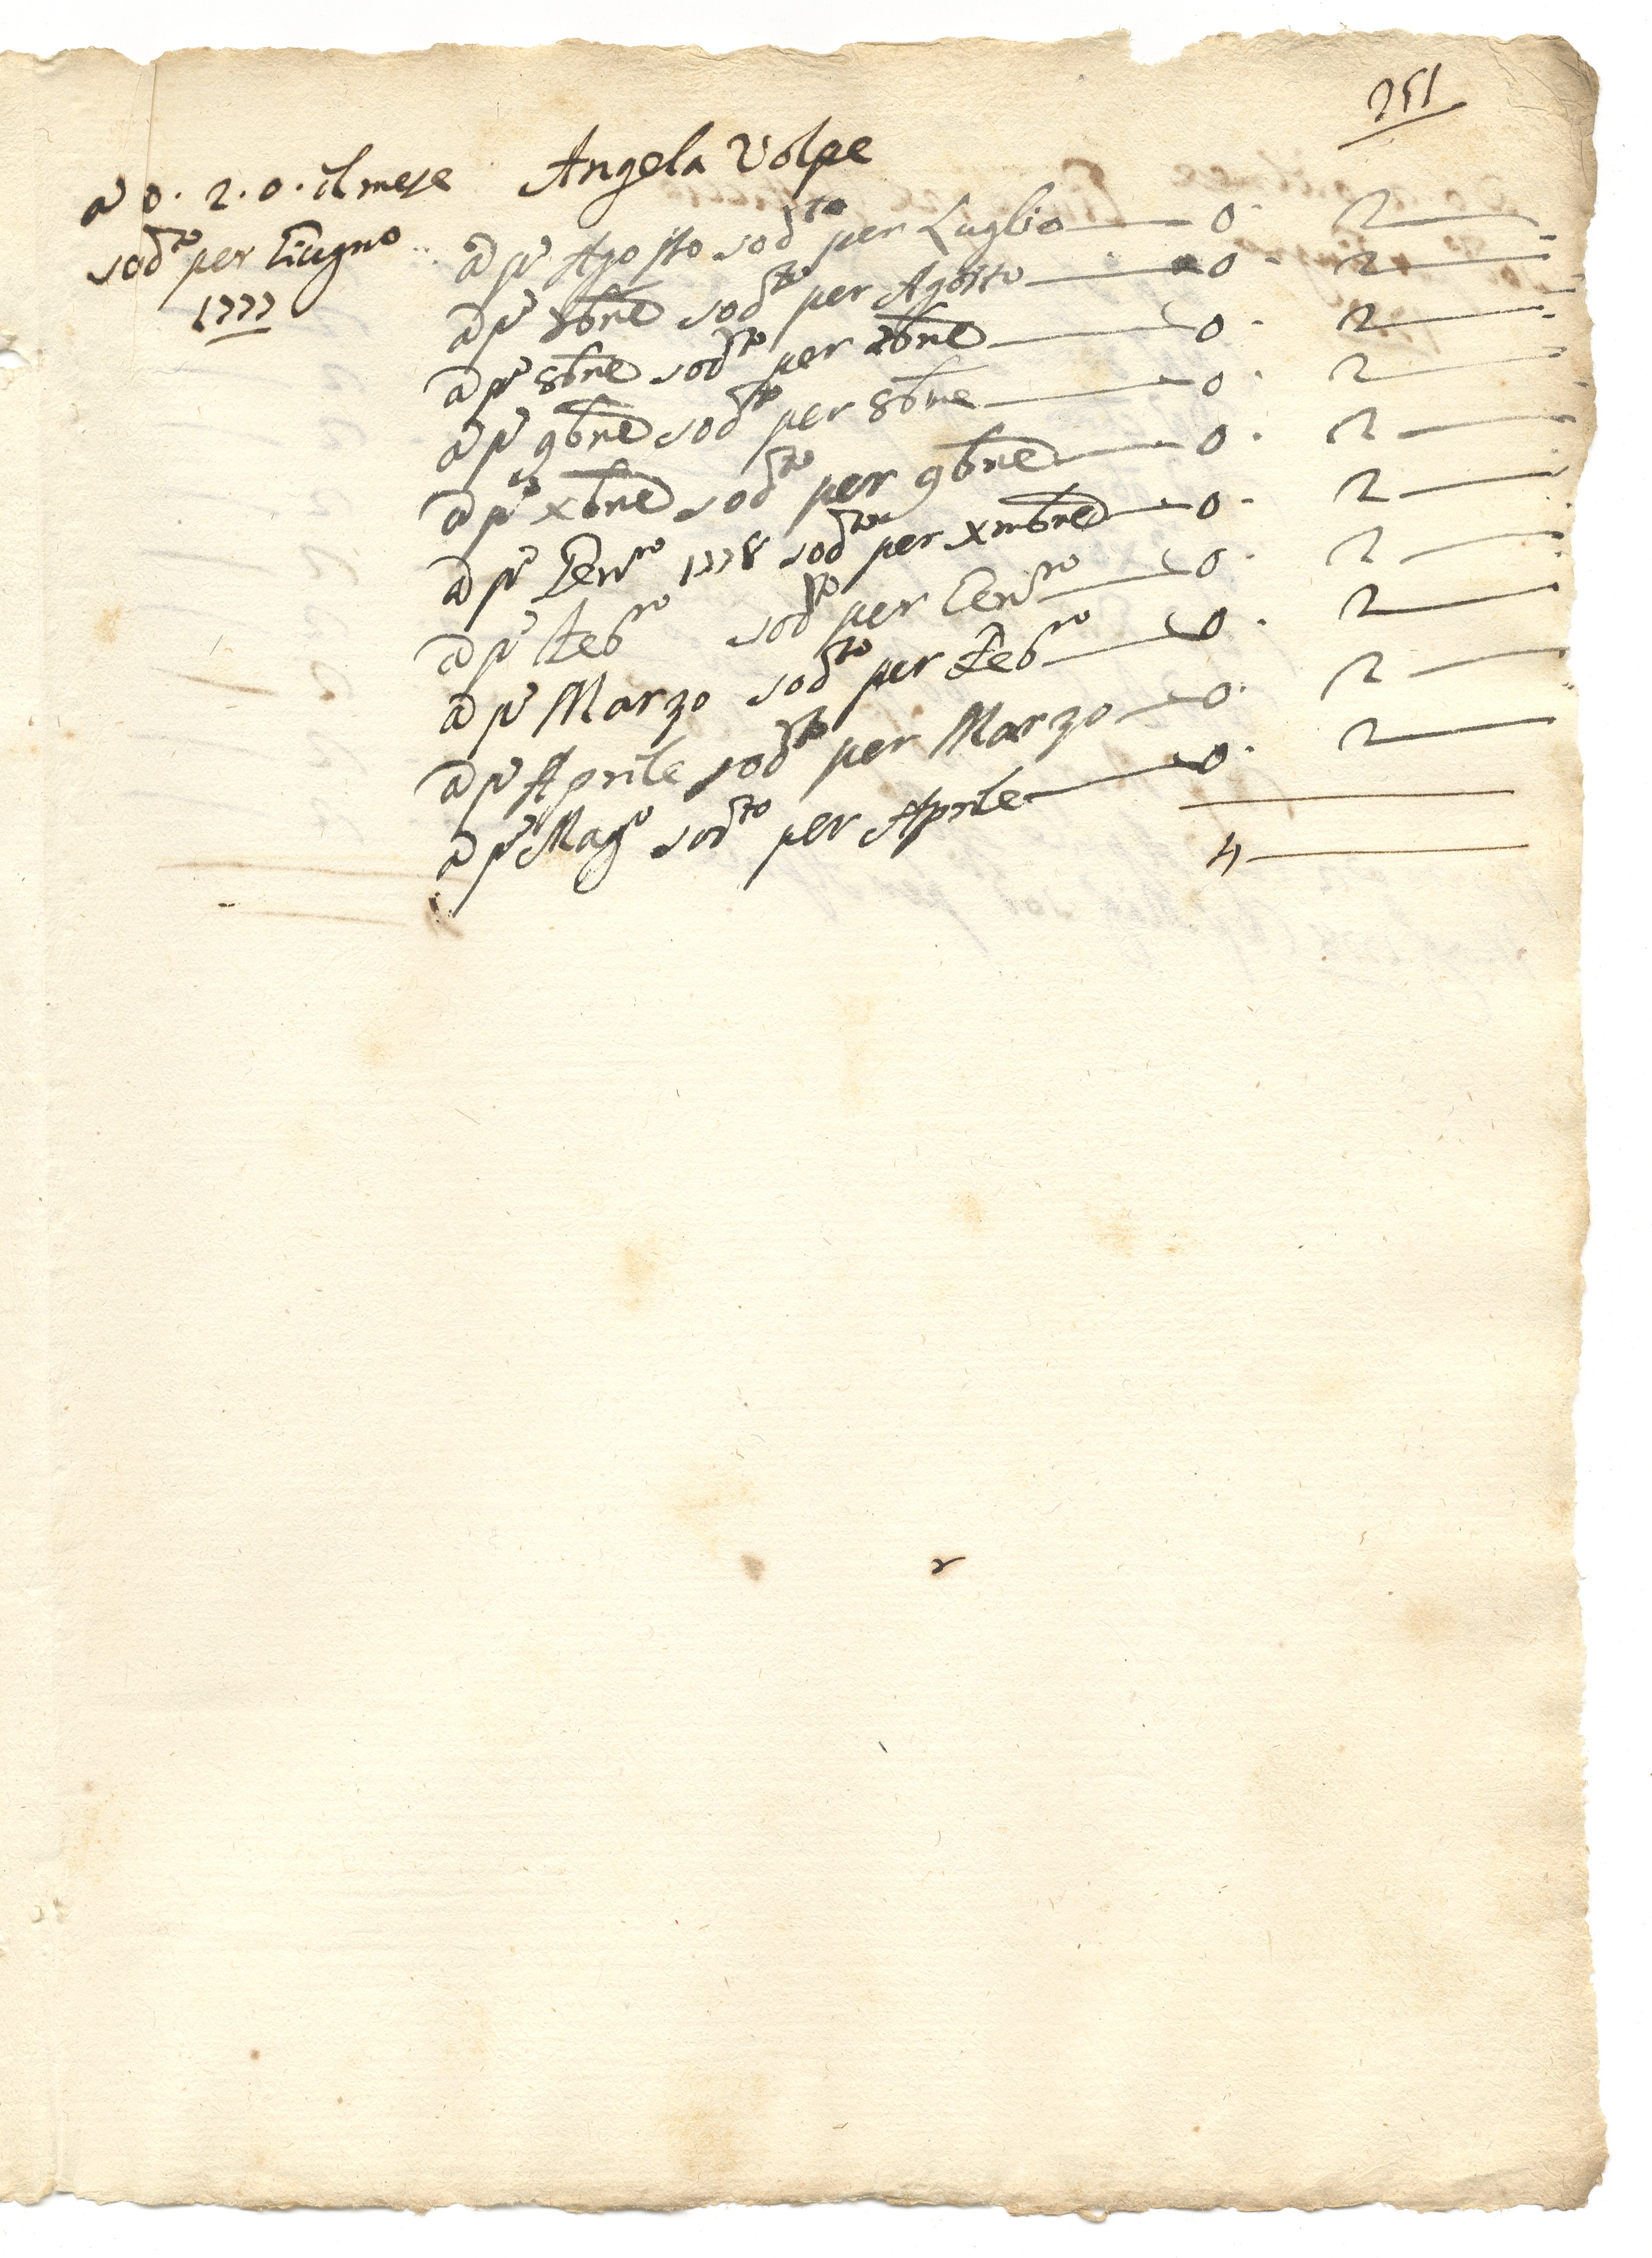 251
a 0. 2. 0. il mese Angela Volpe
sodto per Giugno
1777
a po Agosto sodto per Luglio — 0. 2 —
a po 7bre sodto per Agosto — 0. 2 —
a po 8bre sodto per 7bre — 0. 2 —
a po 9bre sodto per 8bre — 0. 2 —
a po xbre sodto per 9bre — 0. 2 —
a po Genro 1778 sodto per xmbre — 0. 2 —
a po Febro sodto per Genro — 0. 2 —
a po Marzo sodto per Febro — 0. 2 —
a po Aprile sodto per Marzo — 0. 2 —
a po Mago sodto per Aprile — 0. 2 —
4 —